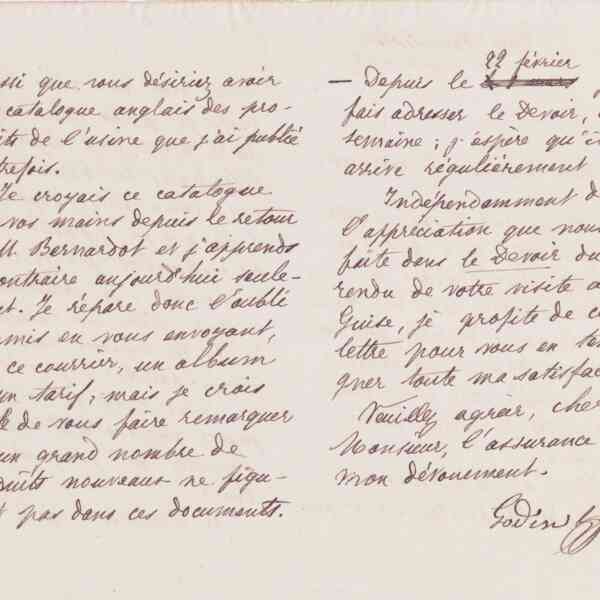 ssi que vous désiriez avoir
catalogue anglais des pro-
its de l'usine que j'ai publié
trefois.
Je croyais ce catalogue
vos mains depuis le retour
M. Bernardot et j'apprends
contraire aujourd'hui seule-
t. Je répare donc l'oubli
mis en vous envoyant,
ce courrier, un album
un tarif; mais je crois
de vous faire remarquer
un grand nombre de
duits nouveaux ne figu-
t pas dans ces documents.
22 février
— Depuis le
fais adresser le Devoir,
semaine; j'espère qu'i
arrive régulièrement
Indépendamment d
l'appréciation que nous
faite dans le Devoir du
rendu de votre visite a
Guise, je profite de c
lettre pour vous en té
gner toute ma satisfac
Veuillez agréer, cher
Monsieur, l'assurance
mon dévouement.
Godin